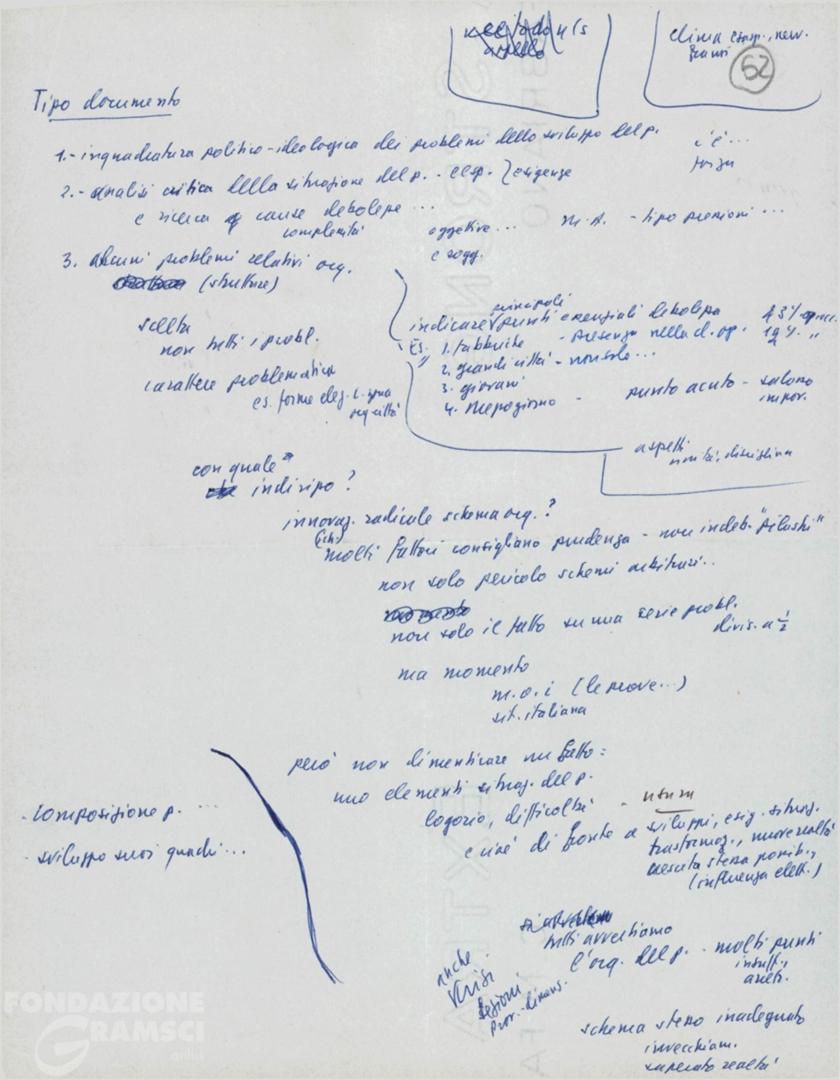 clima comp., new.
62
Tipo documento
1.- inquadratura politico-ideologica dei problemi dello sviluppo del p.
c'è...
forza
2.- analisi critica della situazione del p. - esp. } esigenze
e ricerca cause debolezze ...
complessità
oggettive...
e sogg.
m.A. - tipo pressioni ...
3. alcuni problemi relativi org.
(strutture)
scelta
non tutti i probl.
carattere problematico
es. forme
org. città
principali
indicare punti essenziali debolezza
Es. 1. fabbriche - presenza nella cl. op.
43%
19% "
2. grandi città - non solo...
3. giovani
4. Mezzogiorno - punto acuto - salono
impor.
aspetti
novità, disciplina
con quale
indirizzo?
innovaz. radicale schema org.?
molti fattori consigliano prudenza - non indeb. "pilastri"
non solo pericolo schemi arbitrari..
non solo il fatto su una serie probl.
divis. a ½
ma momento
m.o.i (le prove...)
sit. italiana
però non dimenticare un fatto:
uno elementi situaz. del p.
logorio, difficoltà - usura
e ciò di fronte a sviluppi, esig. situaz.
trasformaz., nuove realtà
cresciuta stessa possib.,
(influenza elett.)
- composizione p. ...
- sviluppo suoi quadri...
tutti avvertiamo
l'org. del p. - molti punti
insuff.,
arretr.
anche
crisi
sezioni
Prov. - dimens.
schema stesso inadeguato
invecchiam.
superato realtà
FONDAZIONE
GRAMSCI
onlus